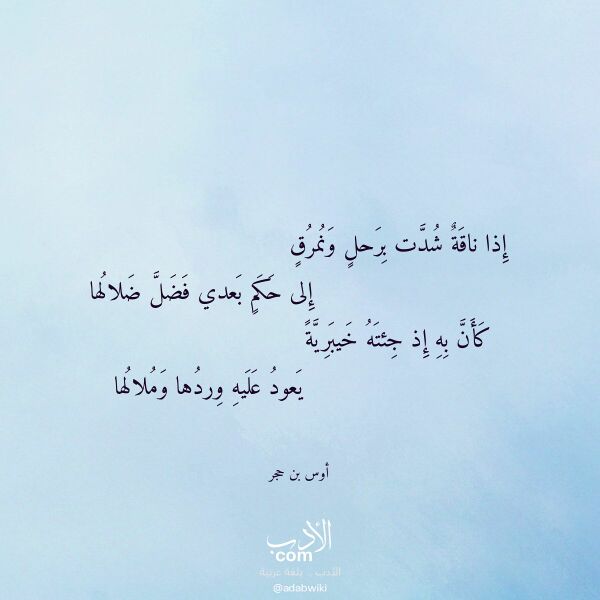 إِذا ناقَةٌ شُدَّت بِرَحلٍ وَنُمرُقٍ
إِلى حَكَمٍ بَعدي فَضَلَّ ضَلالُها
كَأَنَّ بِهِ إِذ جِئتَهُ خَيبَرِيَّةً
يَعودُ عَلَيهِ وِردُها وَمُلالُها
أوس بن حجر
الأدب
com
الأدب .. بلغة عربية
@adabwiki